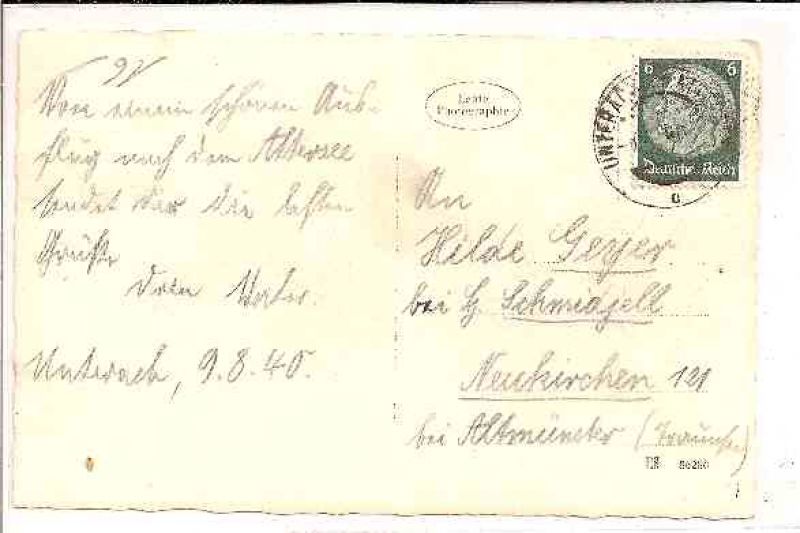 Von einem schönen Aus-
flug nach dem Attersee
sendet dir die besten
Grüße
dein Vater.
Unterach, 9.8.40.
Echte
Photographie
6 6
Deutsches Reich
UNTERA
c
An
Hilde Geyer
bei H. Schmidgell
Neukirchen 121
bei Altmünster (Traunsee)